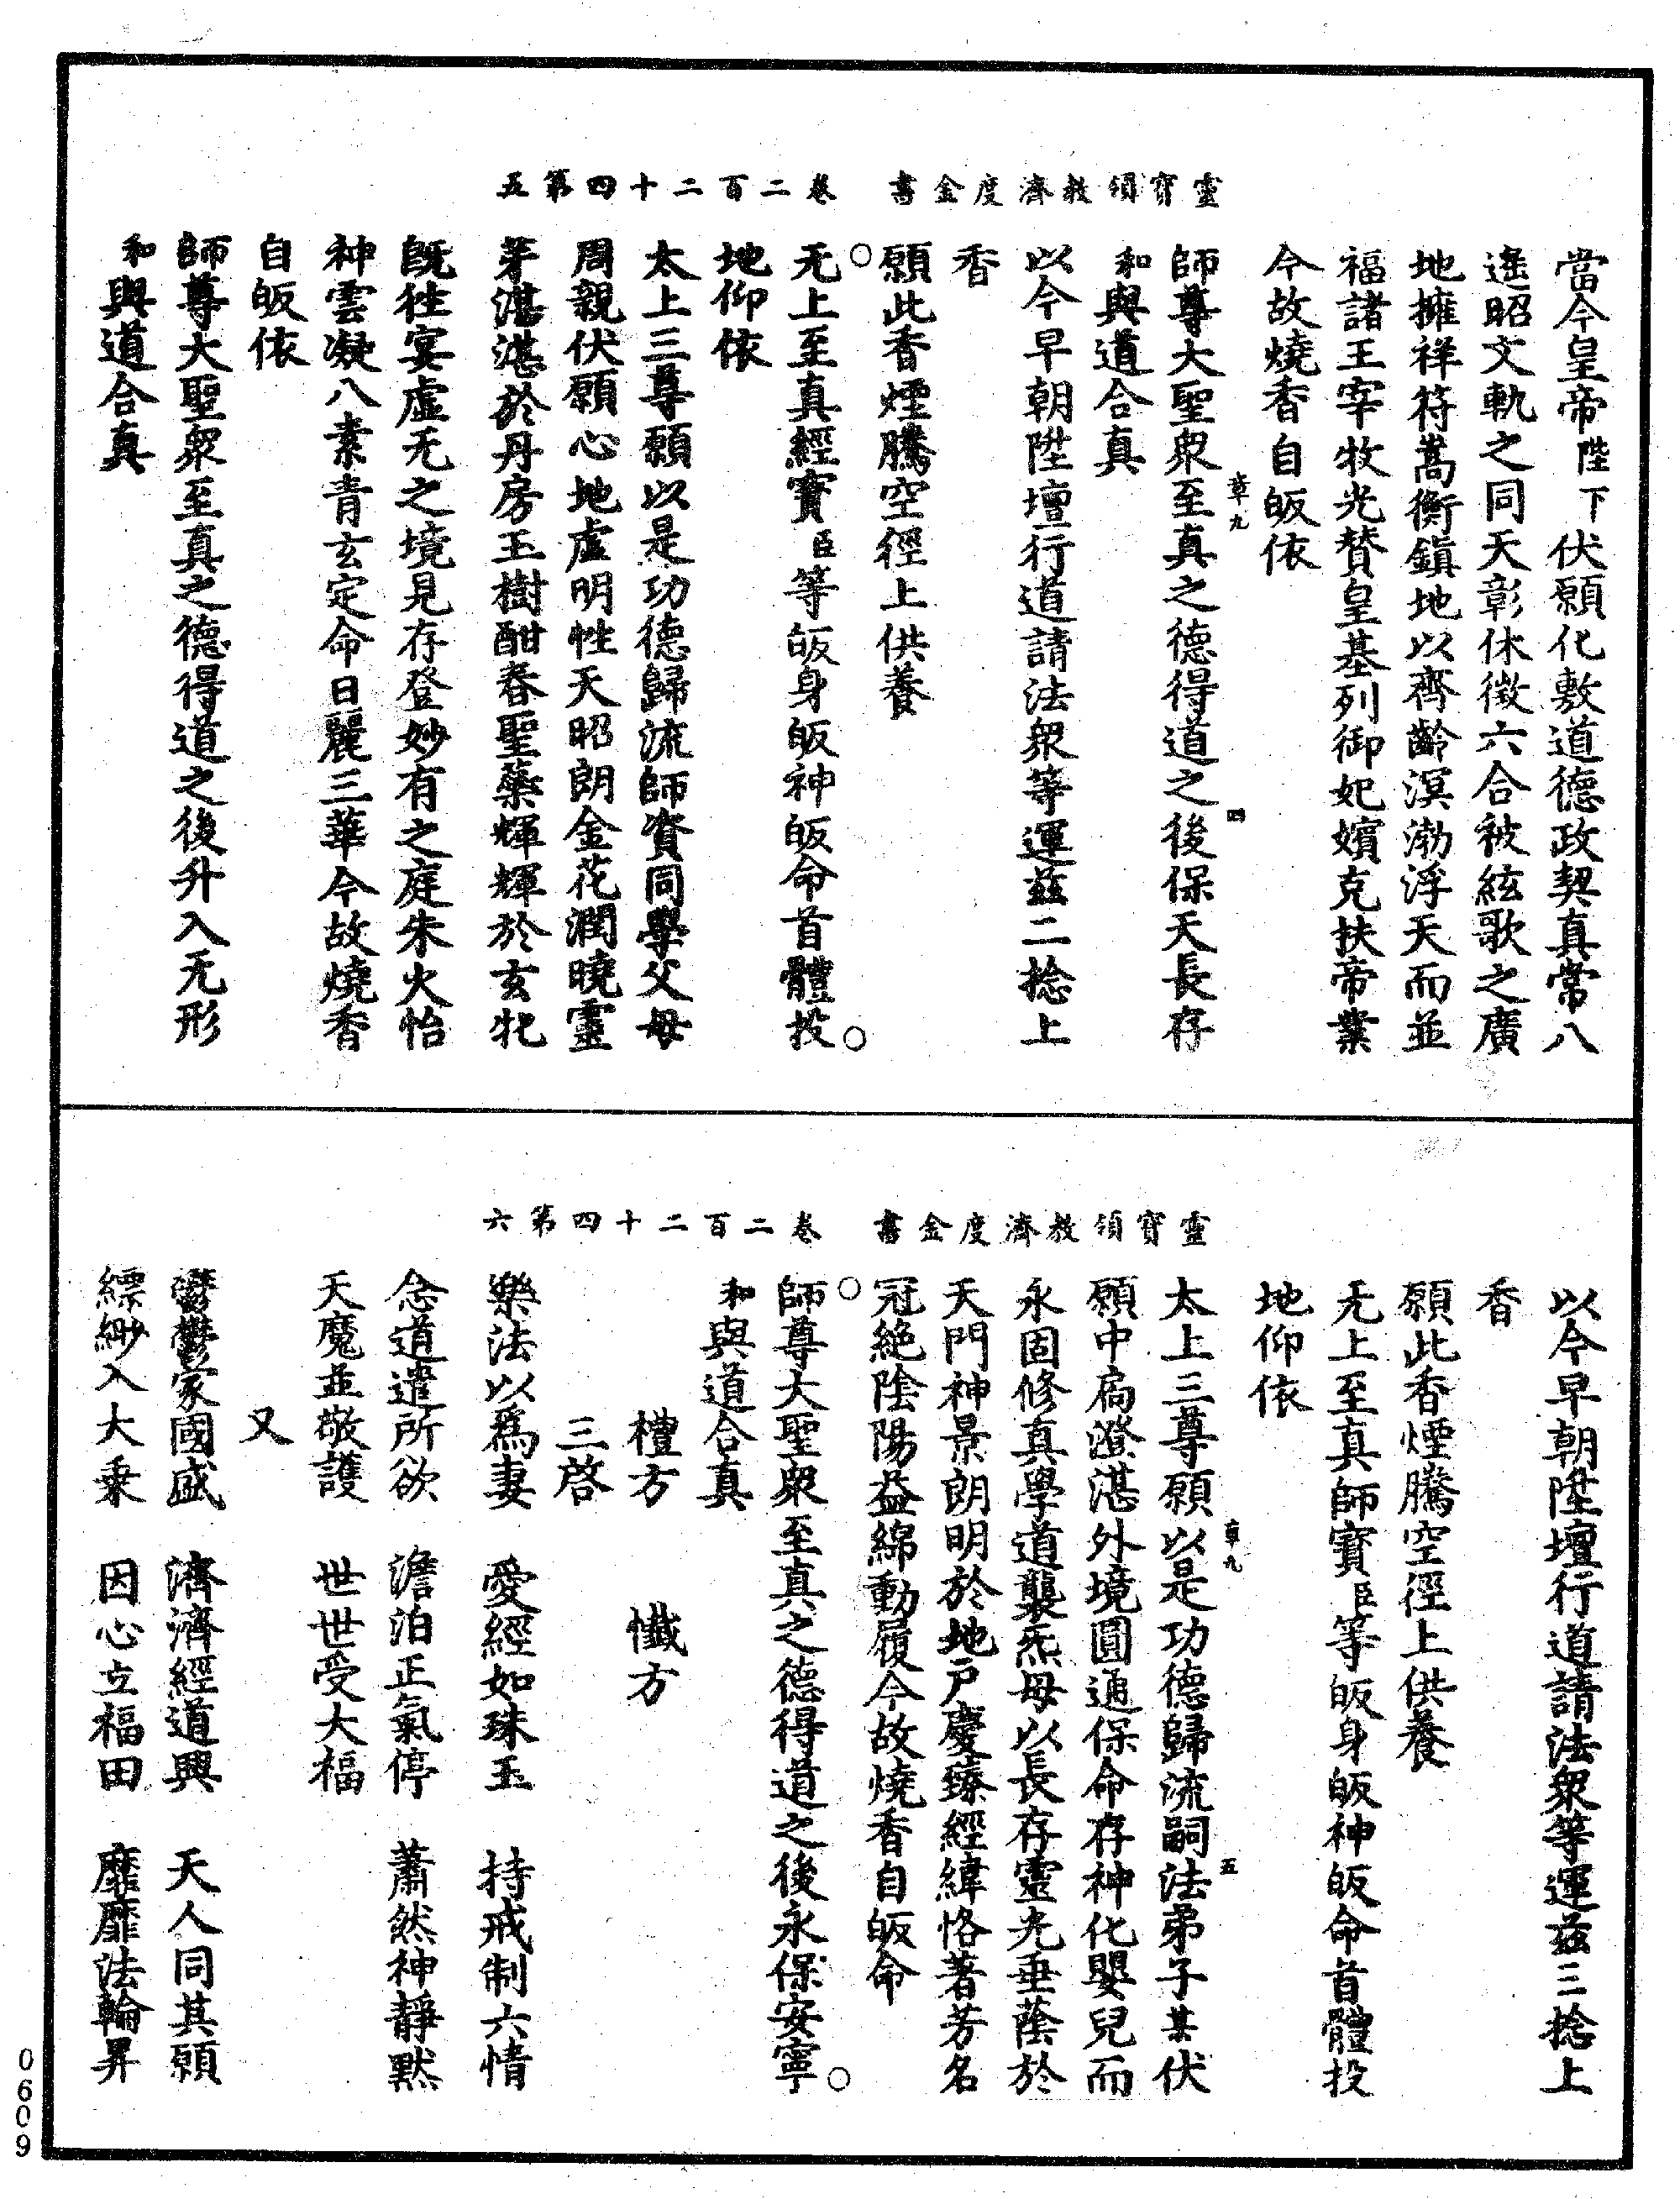 靈寶領教濟度金書　卷二百二十四第五
當今皇帝陛下伏願化敷道德政契真常八
遙昭文軌之同天彰休徵六合被絃歌之廣
地擁祥符嵩衡鎮地以齊齡溟渤浮天而並
福諸王宰牧光賛皇基列御妃嬪克扶帝業
今故燒香自皈依
章九　四
師尊大聖衆至真之德得道之後保天長存
和與道合真
以今早朝陞壇行道請法衆等運茲二捻上
香
願此香煙騰空徑上供養
○无上至真經寶臣等皈身皈神皈命首體投○
地仰依
太上三尊願以是功德歸流師資同學父母
周親伏願心地虛明性天昭朗金花潤曉靈
芽湛湛於丹房玉樹酣春聖藥輝輝於玄牝
旣徃宴虛无之境見存登妙有之庭朱火怡
神雲凝八素青玄定命日麗三華今故燒香
自皈依
師尊大聖衆至真之德得道之後升入无形
和與道合真
靈寶領教濟度金書　卷二百二十四第六
以今早朝陞壇行道請法衆等運茲三捻上
香
願此香煙騰空徑上供養
无上至真師寶臣等皈身皈神皈命首體投
地仰依
章九　五
太上三尊願以是功德歸流嗣法弟子某伏
願中扃澄湛外境圓通保命存神化嬰兒而
永固修真學道襲炁母以長存靈光垂蔭於
天門神景朗明於地戶慶臻經緯恪著芳名
冠絶陰陽益綿動履今故燒香自皈命
○師尊大聖衆至真之德得道之後永保安寧○
和與道合真
禮方　懺方
三啓
樂法以爲妻　愛經如珠玉　持戒制六情
念道遣所欲　澹泊正氣停　蕭然神靜黙
天魔並敬護　世世受大福
又
鬱鬱家國盛　濟濟經道興　天人同其願
縹緲入大乗　因心立福田　靡靡法輪昇
0609